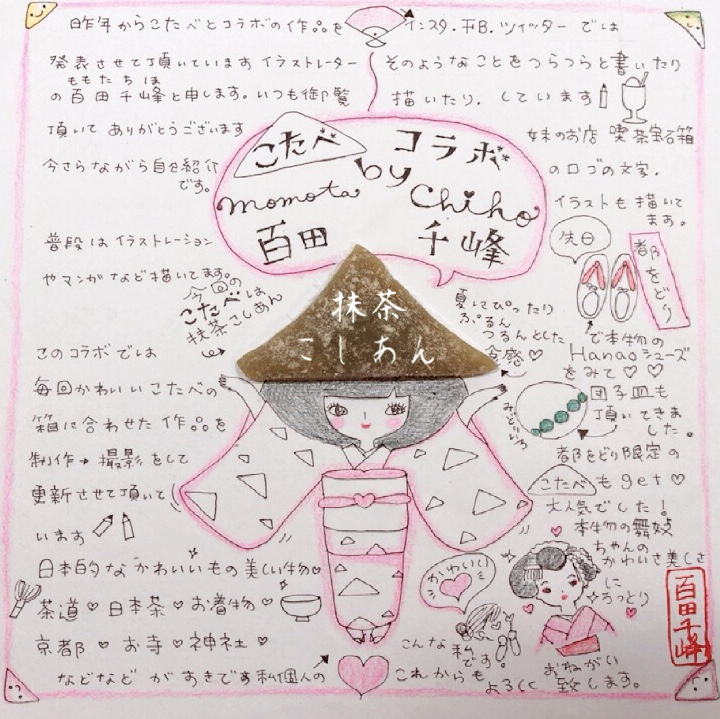 昨年からこたべとコラボの作品を
発表させて頂いていますイラストレーター
ももたちほ
の百田千峰と申します。いつも御覧
頂いてありがとうございます
今さらながら自己紹介
です。
普段はイラストレーション
やマンガなど描いてます。
今回の
こたべは
抹茶こしあん
このコラボでは
毎回かわいいこたべの
箱に合わせた作品を
制作→撮影をして
更新させて頂いて
います
日本的なかわいいもの美しい物♡
茶道♡日本茶♡お着物♡
京都♡お寺♡神社♡
などなどがすきです私個人の
こたべ コラボ
by
momota Chiho
百田 千峰
抹茶
こしあん
インスタ.FB.ツイッターでは
そのようなことをつらつらと書いたり
描いたり.しています
妹のお店 喫茶宝石箱
のロゴの文字.
イラストも描いて
ます。
先日
都をどり
で本物の
Hanaoシューズ
をみて♡♡
夏してぴったり
ぷるん
つるんとした
食感♡
みどりいろ
団子皿も
頂いてきま
した。
都をどり限定の
こたべもget♡
大人気でした!
本物の舞妓
ちゃんの
かわいさ美しさ
に
うっとり
かわいい
こんな私
です。
これからも
よろしく
おねがい
致します。
百田千峰